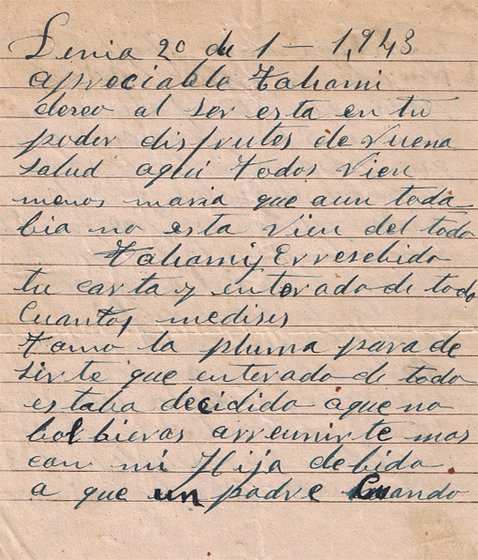 Denia 20 de 1 - 1,943
apreciable Tahami
deseo al ser esta en tu
poder disfrutes de vuena
salud aquí todos vien
menos maria que aun toda
bia no esta vien del todo
Tahami, Erresebido
tu carta y enterado de todo
Cuantos medises
tomo la pluma para de
sirte que enterado de todo
estaba decidido aque no
bolbieras arreunirte mas
con mi Hija debido
a que un padre Cuando